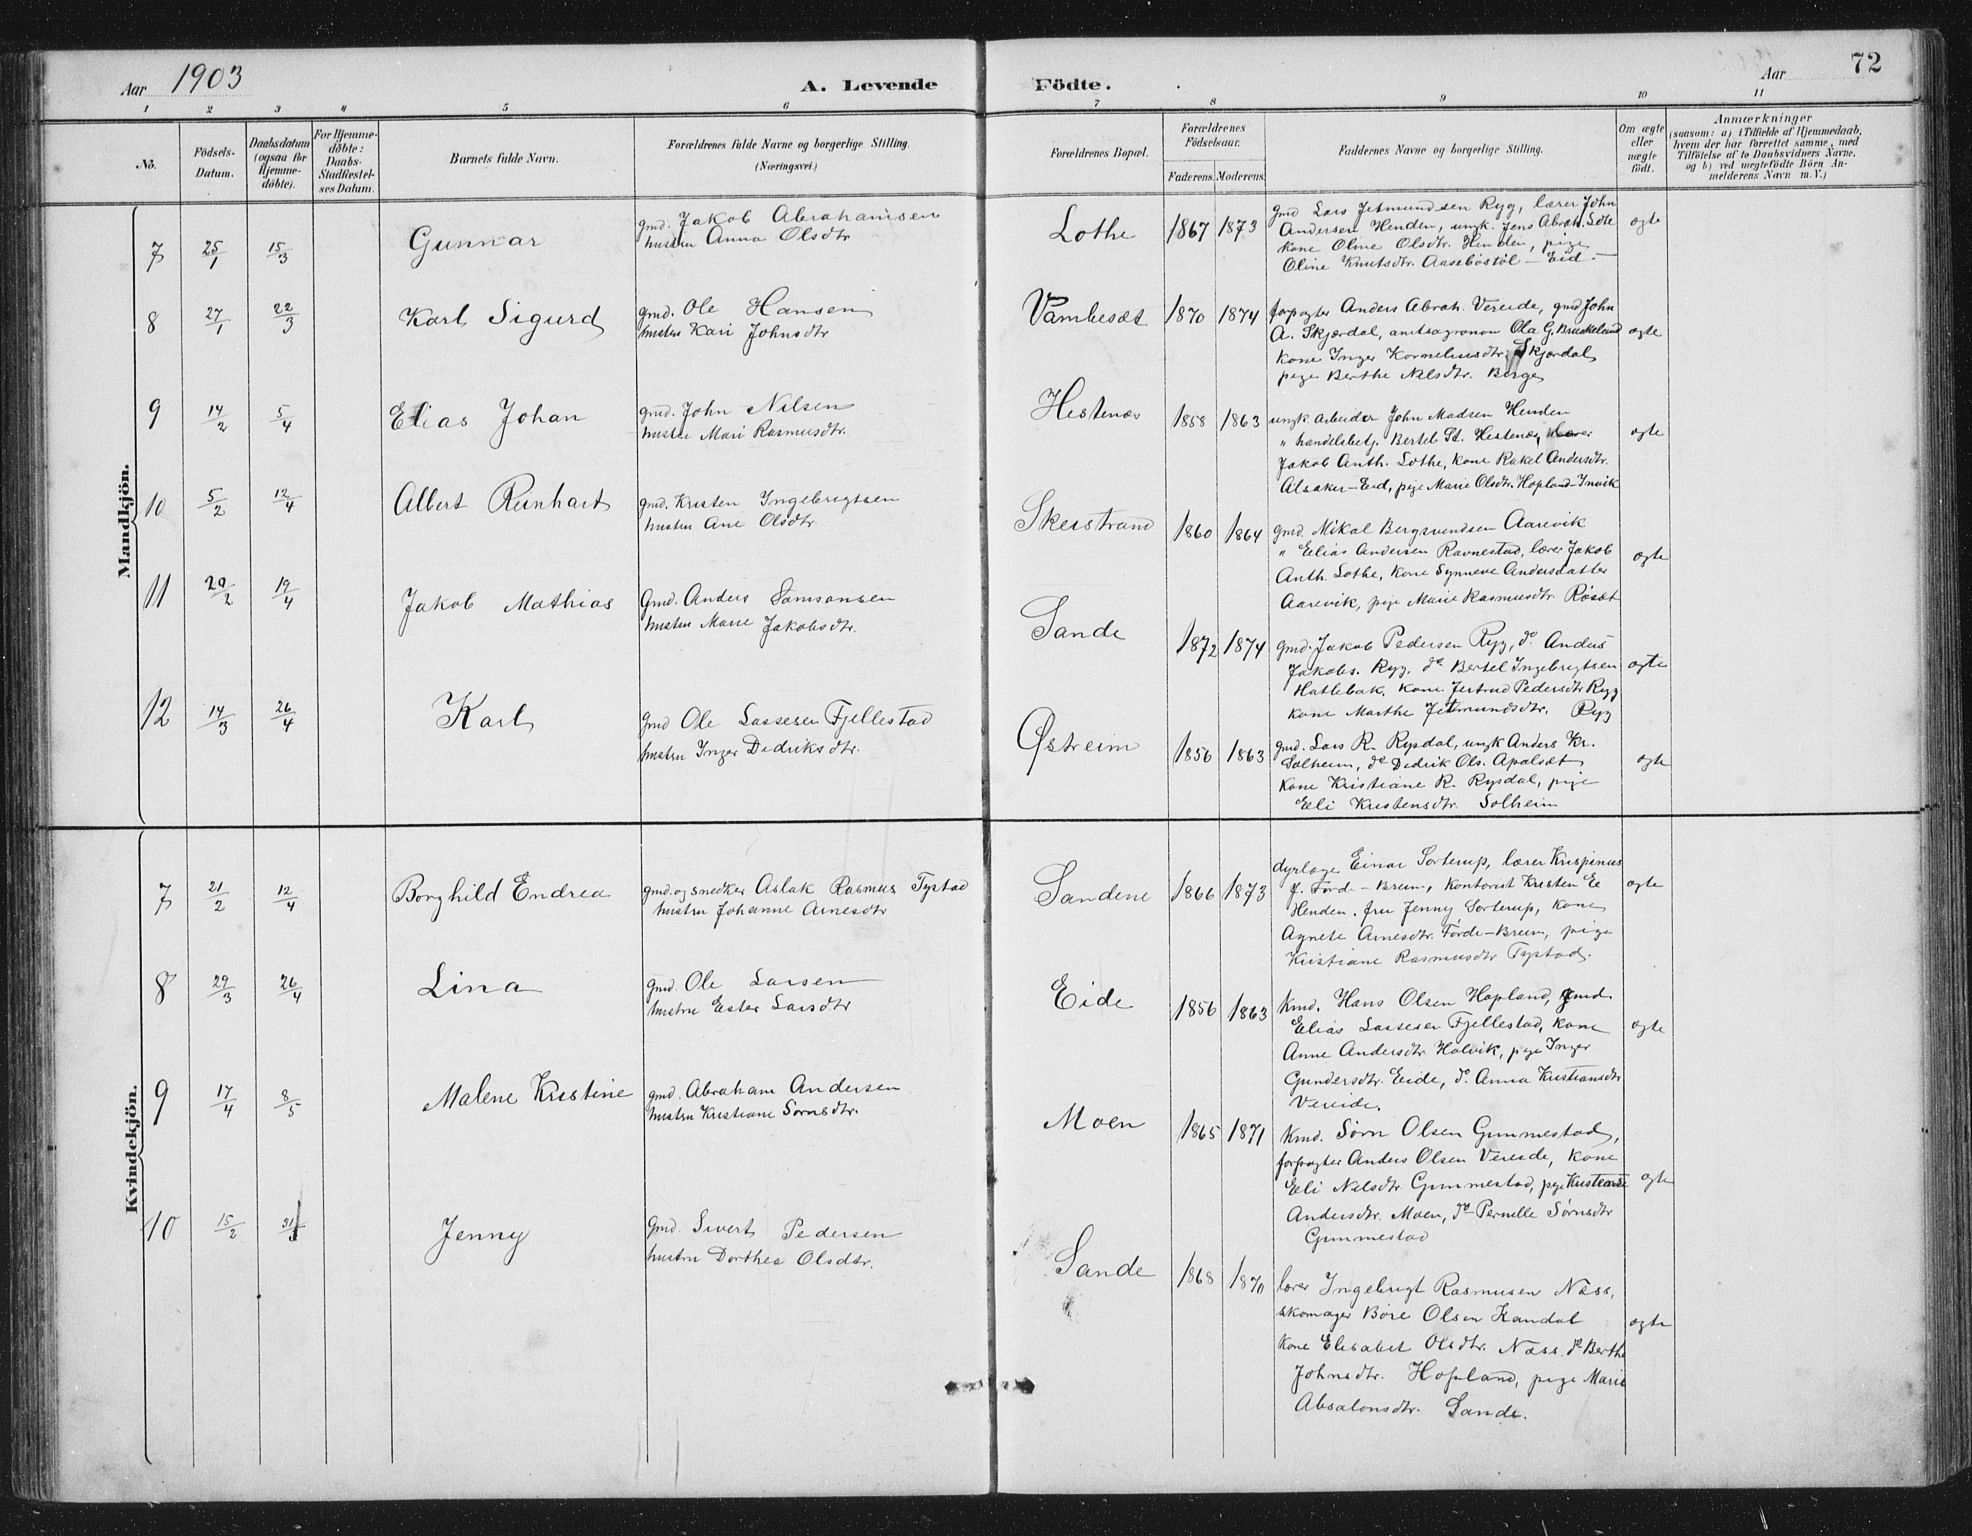 Aar 1903 A. Levende Födte. Aar 72
1 2 3 4 5 6 7 8 9 10 11
No.
Födsels-Datum.
Daabsdatum (ogsaa för Hjemme-döbte).
For Hjemme-döbte: Daabs-Stadfæstel-ses Datum.
Barnets fulde Navn.
Forældrenes fulde Navne og borgerlige Stilling. (Næringsvei.)
Forældrenes Bopæl.
Forældrenes Födselsaar.
Faderens. Moderens.
Faddernes Navne og borgerlige Stilling.
Om ægte eller uægte födt.
Anmærkninger
(saasom: a) i Tilfælde af Hjemmedaab, hvem der har forrettet samme, med Tilföielse af to Daabsvidners Navne. og b) ved uægtefödte Börn An-melderens Navn m. V.)
Mandkjön.
7 25/1 15/3 Gunnar
gmd. Jakob Abrahamsen
hustru Anna Olsdtr
Lothe 1867 1873
gmd Lars Jetmundsen Ryg, lærer John
Andersen Henden, ungk. Jens Abrah. Lote
kone Oline Olsdtr. Henden, pige
Oline Knutsdtr. Aasebøstøl – Eid –
ægte
8 27/1 22/3 Karl Sigurd
gmd. Ole Hansen
hustru Kari Johnsdtr
Vambesæt 1870 1874
forpagter Anders Abrah. Vereide, gmd John
A. Skjørdal, amtsagronom Ola G. Brukeland
kone Inger Korneliusdtr. Skjørdal
pige Berthe Nilsdtr. Berge
ægte
9 14/2 5/4 Elias Johan
gmd. John Nilsen
hustru Mari Rasmusdtr.
Hestenæs 1858 1863
ungk arbeider John Madsen Henden
" handelsbetj. Bertel St. Hestenæs, lærer
Jakob Anth. Lothe, kone Rakel Andersdtr.
Alsaker – Eid, pige Marie Olsdtr. Hopland – Invik
ægte
10 5/2 12/4 Albert Reinhart
gmd. Kristen Ingebrigtsen
hustru Ane Olsdtr
Skeistrand 1860 1864
gmd. Mikal Bergsvendsen Aarevik
" Elias Andersen Ravnestad, lærer Jakob
Anth. Lothe, kone Synneve Andersdatter
Aarevik, pige Marie Rasmusdtr. Røsæt
ægte
11 20/2 19/4 Jakob Mathias
Gmd. Anders Samsonsen
hustru Marie Jakobsdtr.
Sande 1872 1874
gmd. Jakob Pedersen Ryg, do Anders
Jakobs. Ryg, do Bertel Ingebrigtsen
Hatlebak, kone Jertrud Pedersdtr Ryg
kone Marthe Jetmundsdtr. Ryg
ægte
12 14/3 26/4 Karl
gmd Ole Lassesen Fjellestad
hustru Inger Didriksdtr.
Østreim 1856 1863
gmd. Lars R. Rysdal, ungk Anders Kr.
Solheim, do Didrik Ols. Apalsæt
kone Kristiane R. Rysdal, pige
Eli Kristensdtr. Solheim
ægte
Kvindekjön.
7 21/2 12/4 Borghild Endrea
gmd. og snedker Aslak Rasmus Tystad
hustru Johanne Arnesdtr
Sandene 1866 1873
dyrlæge Einar Sorterup, lærer Krispinus
J. Førde – Breim, kontorist Kristen E
Henden, fru Jenny Sorterup, kone
Agnete Arnesdtr. Førde – Breim, pige
Kristiane Rasmusdtr Tystad.
ægte
8 29/3 26/4 Lina
gmd. Ole Larsen
hustru Ester Larsdtr
Eide 1856 1863
Kmd. Hans Olsen Hopland, gmd.
Elias Lassesen Fjellestad, kone
Anne Andersdtr Holvik, pige Inger
Gundersdtr. Eide, do. Anna Kristiansdtr
Vereide.
ægte
9 17/4 8/5 Malene Kristine
gmd. Abraham Andersen
hustru Kristiane Sørnsdtr.
Moen 1865 1871
Kmd. Sørn Olsen Gimmestad,
forpagter Anders Olsen Vereide, kone
Eli Nilsdtr. Gimmestad, pige Kristiane
Andersdtr. Moen, do Pernelle Sørnsdtr
Gimmestad
ægte
10 15/2 31/5 Jenny
Gmd. Sivert Pedersen
hustru Dorthea Olsdtr.
Sande 1868 1870
lærer Ingebrigt Rasmusen Næss,
skomager Børe Olsen Kandal
kone Elisabet Olsdtr. Næss. do Berthe
Johnsdtr. Hopland, pige Marie
Absalonsdtr. Sande.
ægte